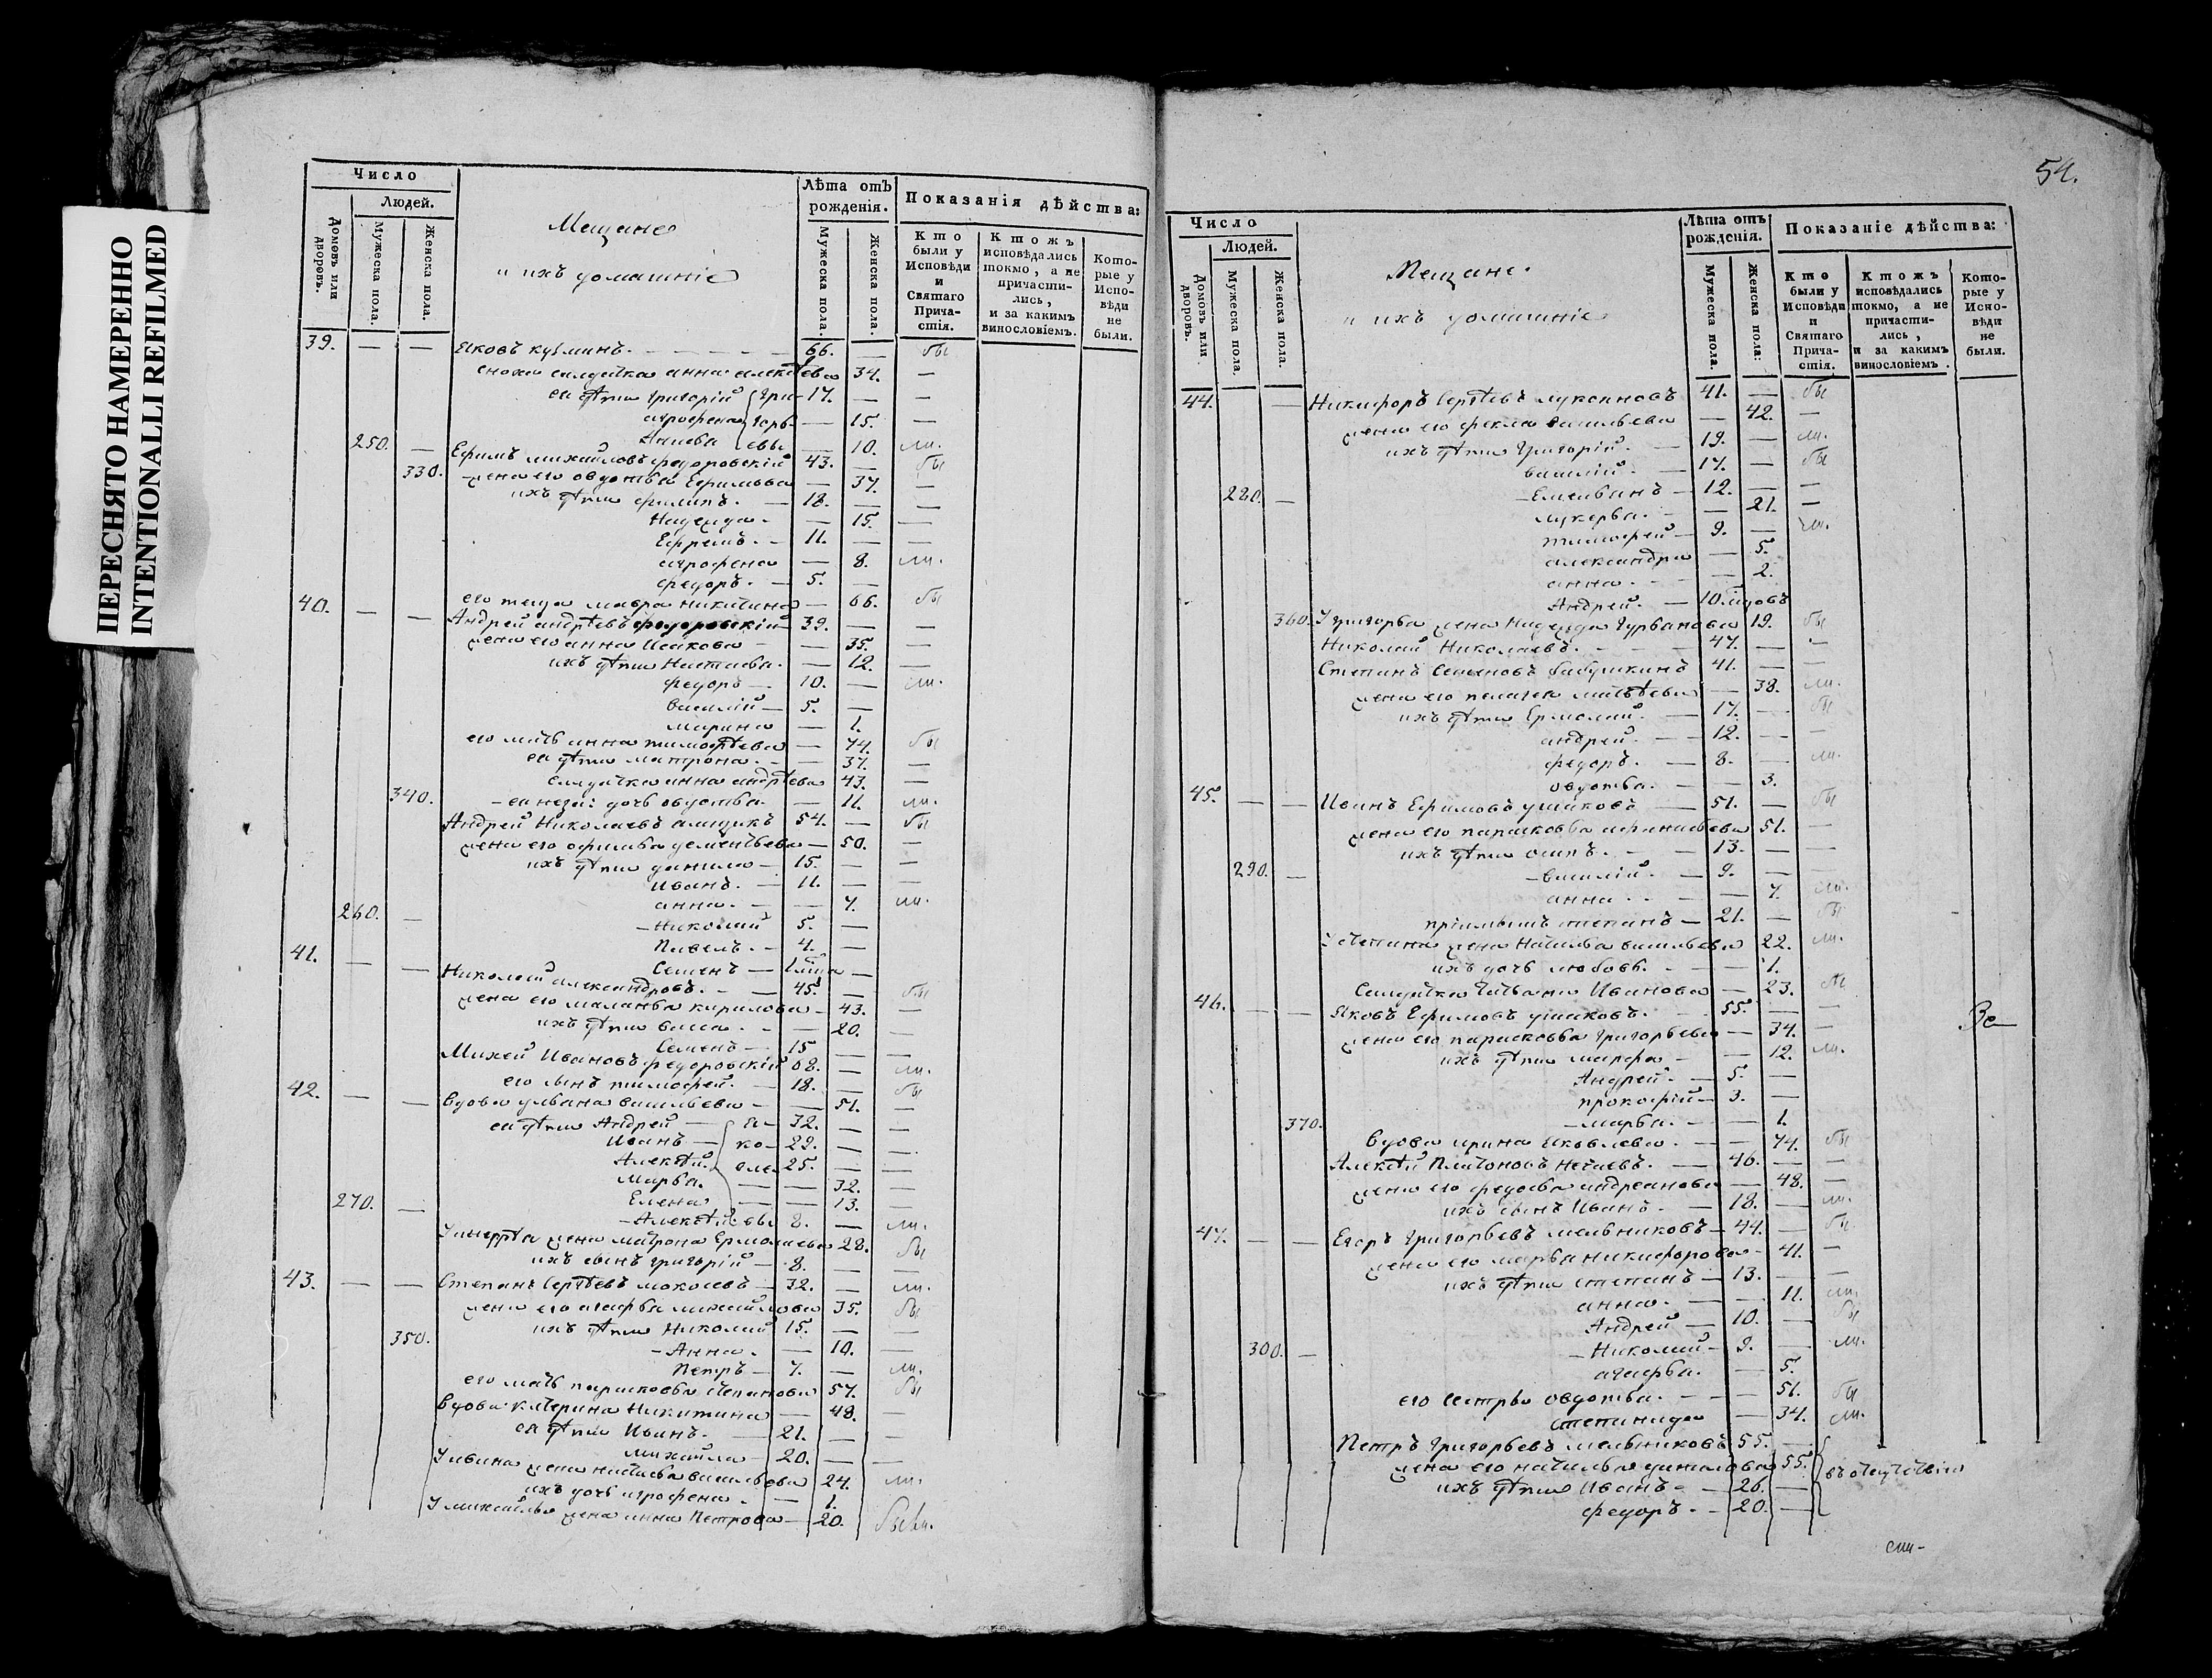 ПЕРЕСНЯТО НАМЕРЕННО
INTENTIONALLI REFILMED
Число
Людей.
Домовъ или дворовъ.
Мужеска пола.
Женска пола.
Мещане
и ихъ домашніе
Лѣта отъ рожденія.
Мужеска пола.
Женска пола.
Показанія дѣйства:
Кто были у Исповѣди и Святаго Причастія.
Ктожъ исповѣдались токмо, а не причастились, и за какимъ винословіемъ.
Которые у Исповѣди не были.
39. — — Яковъ кузминъ. — 66. — бы
сноха салдатка анна алексѣева 34. —
ея дѣти григорій 17. — —
агрофена — 15. —
Анисья — 10. ли.
250. — Ефимъ михайловъ федоровскій 43. — бы
330. жена его овдотья Ефимьева — 37. —
ихъ дѣти филипъ. — 18. — —
Надежда. — 15. —
Ефремъ. — 11. — —
агрофена — 8. ли.
федоръ. — 5. —
его теща мавра никитина — 66. бы
40. — — Андрей андрѣевъ федоровскій 39. — —
жена его анна Исакова — 35. —
ихъ дѣти Настасья. — 12. —
федоръ — 10. — ли.
василій — 5. —
марина — 1.
его мать анна тимофѣева — 74. бы
ея дѣти матрона. — 37. —
салдатка анна андрѣева 43. —
340. — ея неза: дочь овдотья. — 11. ли.
Андрей Николаевъ ямщикъ 54. — бы
жена его офимья дементьева — 50. —
ихъ дѣти данило — 15. — —
Иванъ. — 11. — —
анна. — 7. ли.
260. — Николай 5. —
Павелъ. — 4. —
Семенъ —
41. — — Николай александровъ. — 45. — бы
жена его маланья кирилова — 43. —
ихъ дѣти васса. — 20.
Семенъ — 15 — —
Михей Ивановъ федоровскій 68. — ли.
его сынъ тимофей. — 18. — бы
42. — — Вдова ульяна васильева — 51. —
ея дѣти Андрей — 32. — —
Иванъ — 29. — —
Алексѣй. 25. — —
Марья. — 32. —
Елена — 13. —
270. — Алексѣй 8. — ли.
У андрѣя жена матрона Ермолаева 28. бы
ихъ сынъ григорій — 8. — —
43. — — Степанъ Сергѣевъ 32. — ли.
жена его агафья михайлова 35. бы
ихъ дѣти Николай 15. — —
350. — Анна. — 10. —
Петръ — 7. — ли.
его мать парасковья степанова 57. бы
вдова катерина Никитина — 48. —
ея дѣти Иванъ. — 21. — —
михайла 20. — —
У ивана жена наталья васильева 24. ли.
ихъ дочь агрофена. — 1.
У михайлы жена анна Петрова — 20.
54.
Число
Людей.
Домовъ или дворовъ.
Мужеска пола.
Женска пола.
Мещане.
и ихъ домашніе
Лѣта отъ рожденія.
Мужеска пола.
Женска пола:
Показаніе дѣйства:
Кто были у Исповѣди и Святаго Причастія.
Ктожъ исповѣдались токмо, а не причастились, и за какимъ винословіемъ.
Которые у Исповѣди не были.
44. — Никифоръ Сергѣевъ лукоиновъ 41. — бы
жена его фекла васильева — 42. —
ихъ дѣти григорій. — 19. — ли.
василій. — 17. — бы
280. — Емельянъ — 12. — —
лукерья. — 21. —
тимофей — 9. — ли.
александра — 5.
анна. — 2.
Андрей. — 10.
360. У григорья жена Надежда 19. бы
Николай Николаевъ. — 47. — —
Степанъ Семеновъ бабушкинъ 41. — —
жена его пелагея матвѣева — 38. ли.
ихъ дѣти Ермолай. — 17. — бы
андрей. — 12. — —
федоръ. — 8. — ли.
овдотья. — 3.
45. — — Иванъ Ефимовъ ушаковъ — 51. — бы
жена его парасковья афанасьева 51. —
ихъ дѣти осипъ. — 13. — —
290. — василій. — 9. —
анна. — 7. ли.
пріимышъ степанъ — 21. — бы
У степана жена Наталья васильева 22. ли.
ихъ дочь любовь. — 1.
Салдатка татьяна Иванова — 23. бы
46. — — Яковъ Ефимовъ ушаковъ. — 55. — —
жена его парасковья григорьева — 34. —
ихъ дѣти марфа — 12. ли.
Андрей. — 5. —
прокофій — 3. —
370. — марья. — 1.
вдова ирина яковлева. — 74. бы
Алексѣй Платоновъ нечаевъ. — 46. — —
жена его федосья андреанова — 48. —
ихъ сынъ Иванъ. — 18. — ли.
47. — — Егоръ григорьевъ мельниковъ — 44. — бы
жена его марья никифорова — 41. —
ихъ дѣти степанъ — 13. — —
анна. — 11. ли.
Андрей — 10. — бы
300. — Николай — 9. — ли.
агафья. — 5.
его сестры овдотья. — 51. бы
степанида — 34. ли.
Петръ григорьевъ мельниковъ 55. —
жена его наталья данилова 55. въ отсутствіи
ихъ дѣти Иванъ — 26. —
федоръ. — 20. —